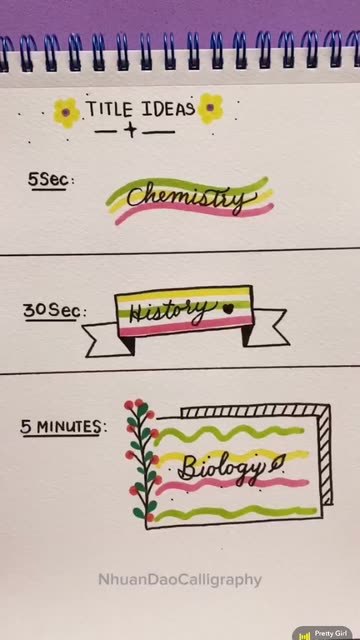 TITLE IDEAS
5Sec:
Chemistry
30Sec:
History
5 MINUTES:
Biology
NhuanDaoCalligraphy
Pretty Girl